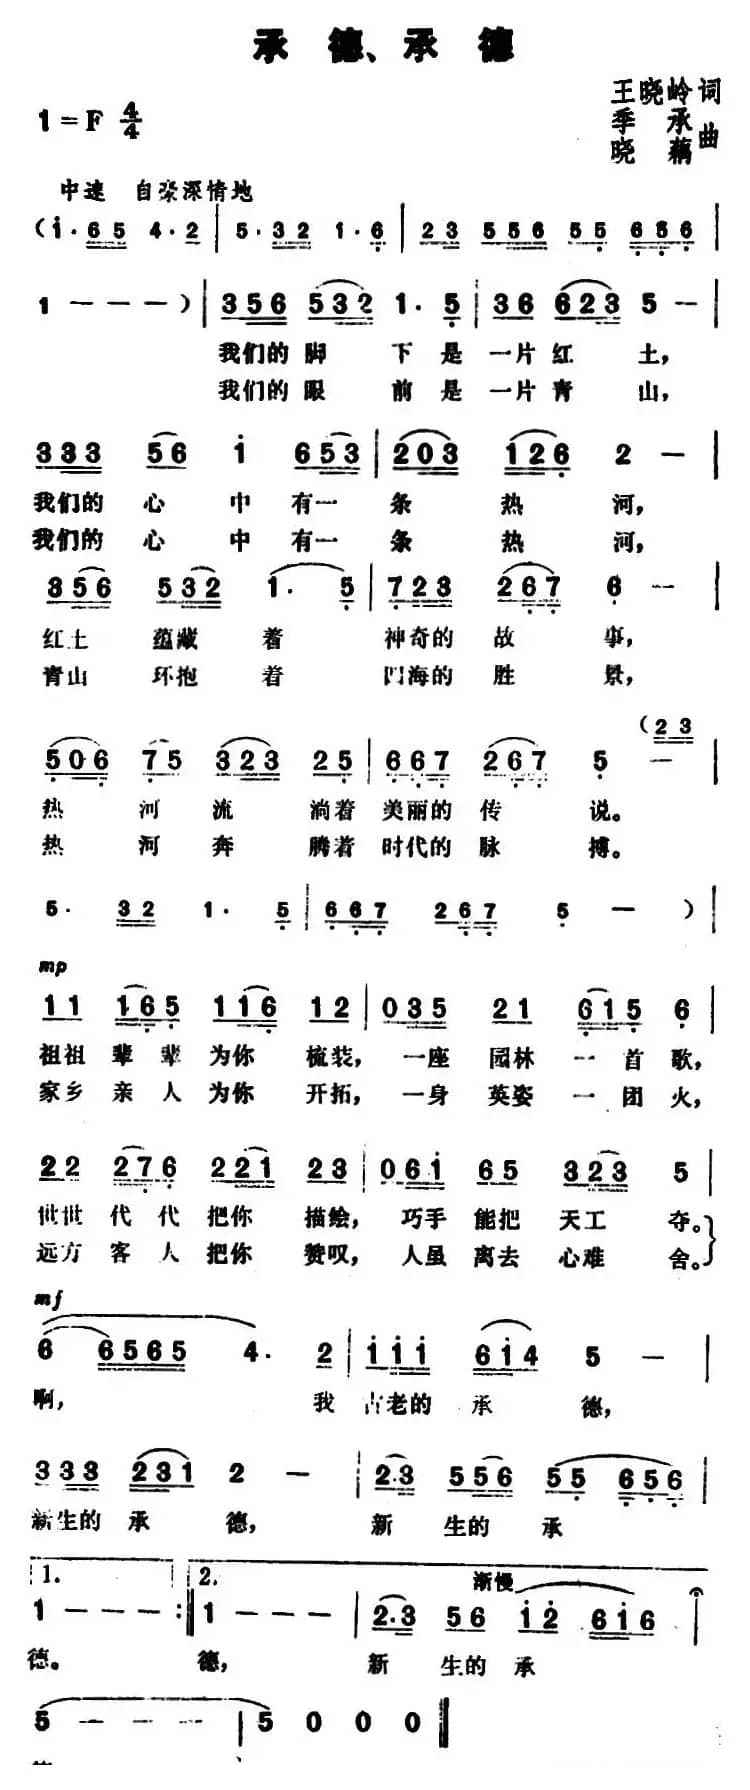 承 德、承 德
王晓岭 词
季 承
晓 藕 曲
1=F 4/4
中速 自豪深情地
(i·65 4·2 | 5·32 1·6 | 23 556 55 656 |
1 - - - ) | 356 532 1· 5 | 36 623 5 - |
我们的脚 下是一片红 土,
我们的眼 前是一片青 山,
333 56 i 653 | 203 126 2 - |
我们的 心 中 有一 条 热 河,
我们的 心 中 有一 条 热 河,
356 532 1· 5 | 723 267 6 - |
红土 蕴藏 着 神奇的 故 事,
青山 环抱 着 四海的 胜 景,
(23
506 75 323 25 | 667 267 5 -
热 河 流 淌着 美丽的 传 说。
热 河 奔 腾着 时代的 脉 搏。
5· 32 1· 5 | 667 267 5 - ) |
mp
11 165 116 12 | 035 21 615 6 |
祖祖 辈 辈 为你 梳装, 一座 园林 一 首 歌,
家乡 亲 人 为你 开拓, 一身 英姿 一 团 火,
22 276 221 23 | 06i 65 323 5 |
世世 代 代 把你 描绘, 巧手 能把 天工 夺。
远方 客 人 把你 赞叹, 人虽 离去 心难 舍。
mf
6 6565 4· 2 | iii 6i4 5 - |
啊, 我 古老的 承 德,
333 231 2 - | 2·3 556 55 656 |
新生的 承 德, 新 生的 承
1. 2. 渐慢
1 - - - :‖ 1 - - - | 2·3 56 i2 6i6 |
德。 德, 新 生的 承
5 - - - | 5 0 0 0 ‖